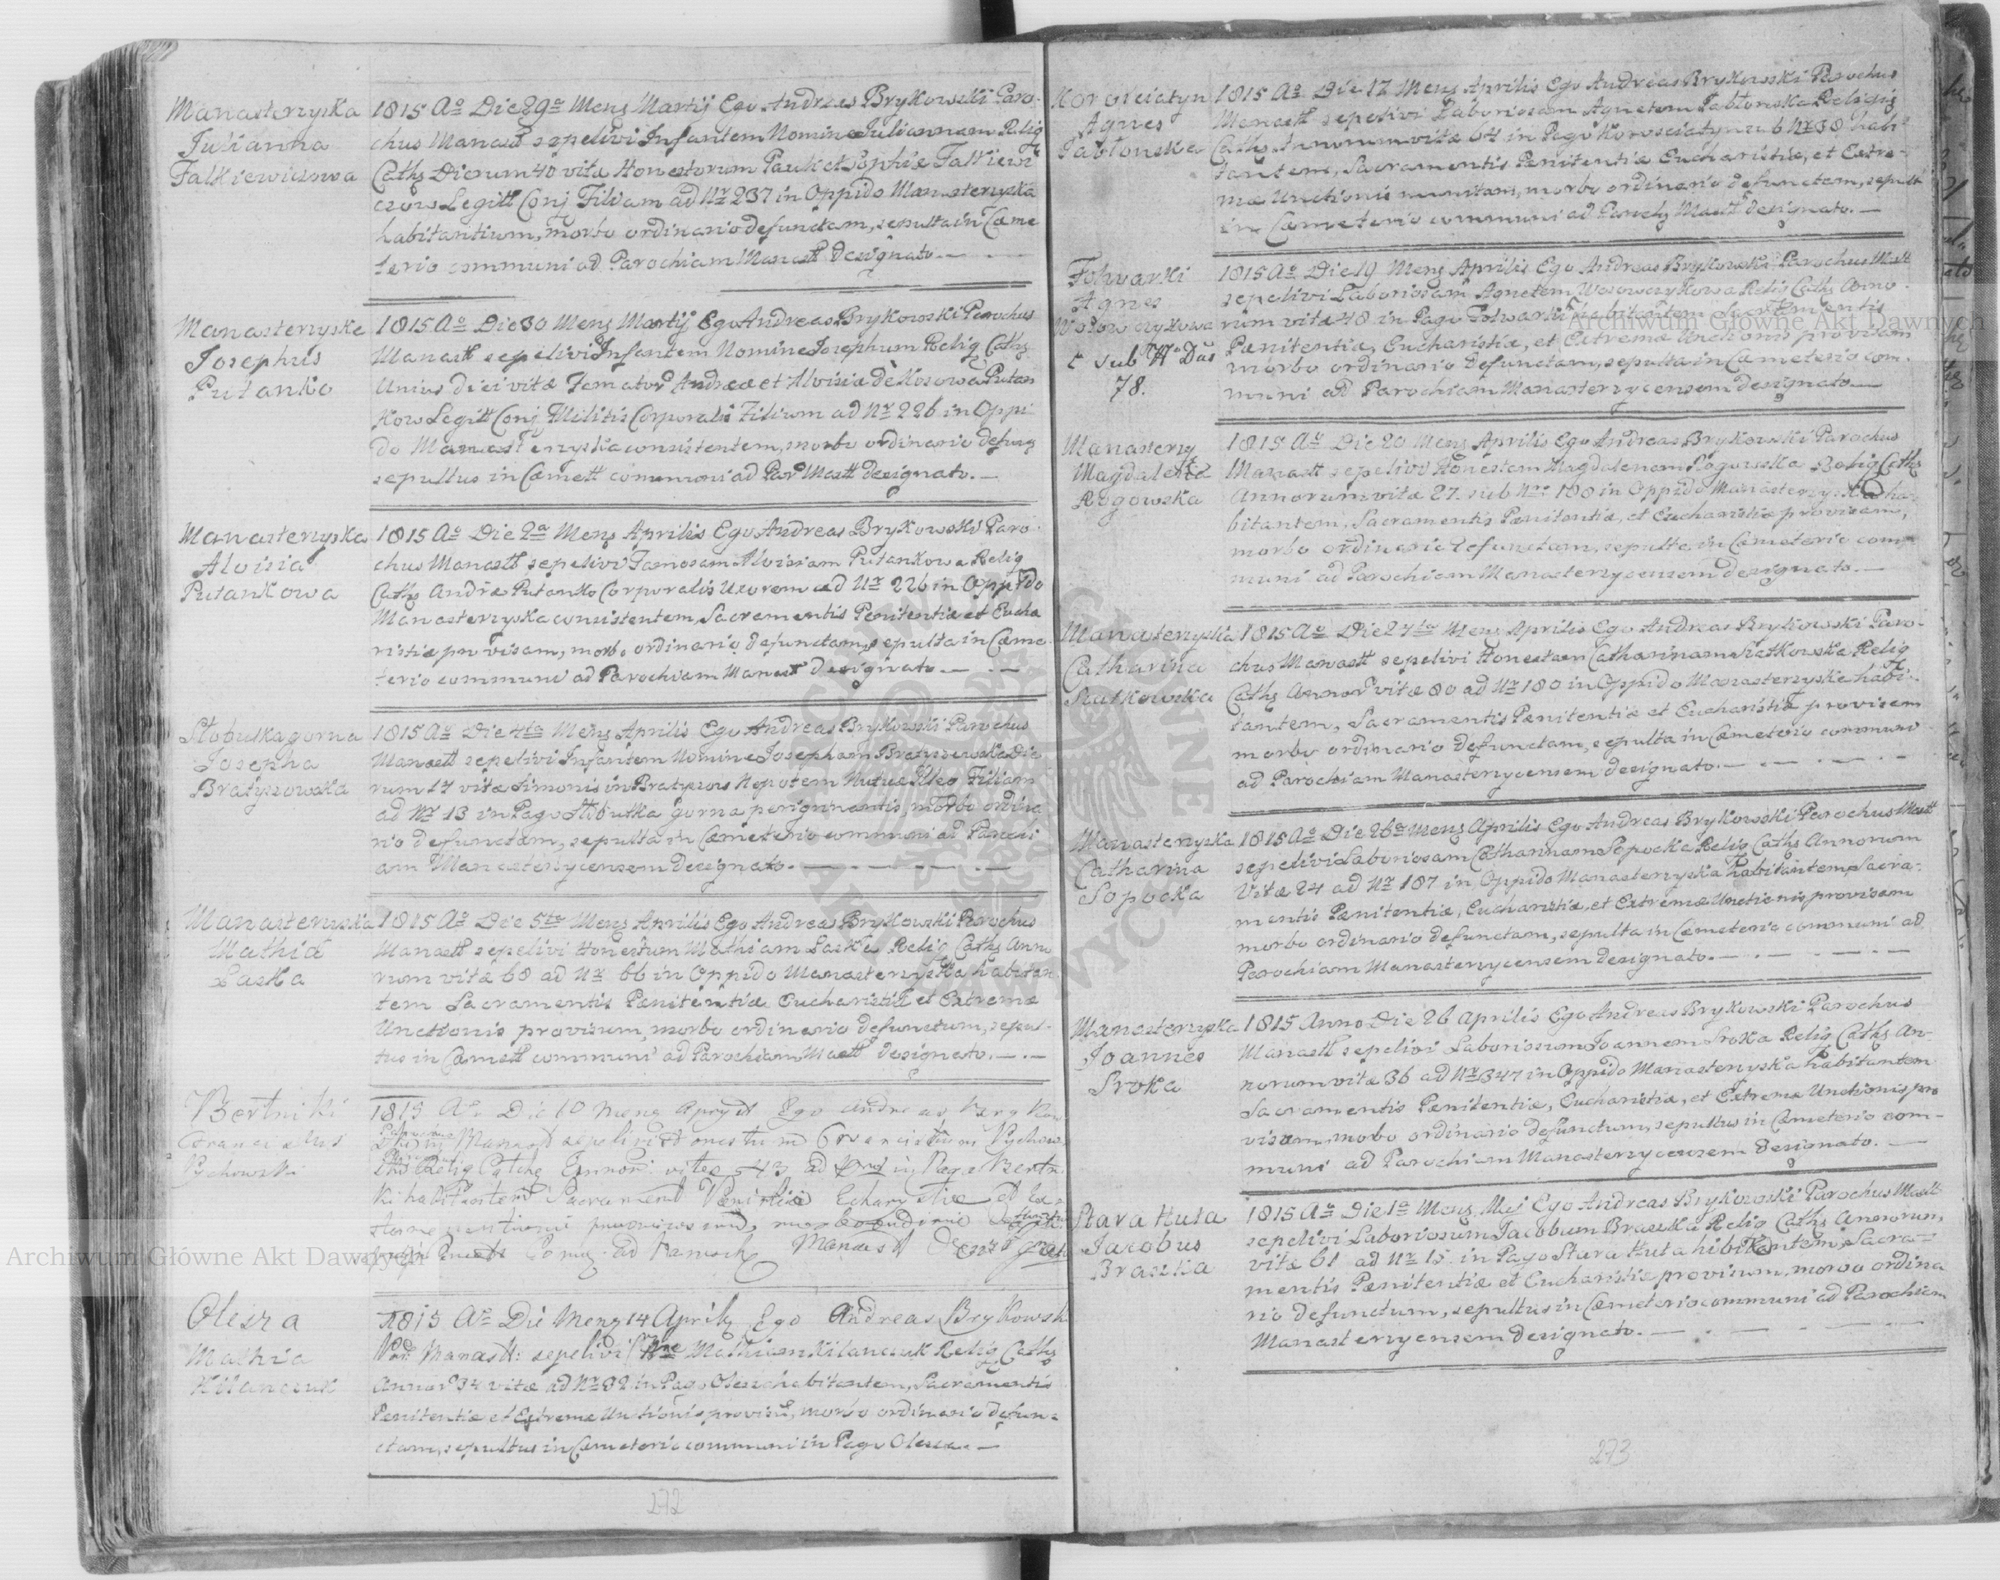 Manasterzyska
Julianna
Falkiewiczowa
1815 Ao Die 29a Mens Martij Ego Andreas Brykowski Paro-
chus Manast sepelivi Infantem Nomine Juliannam Relig
Caths Dierum 40 vitæ Honestorum Pauli et Sophiæ Falkiewi
czow Legitt Conj Filiam ad Nr 237 in Oppido Manasterzyska
habitantium, morbo ordinario defunctam, sepulta in Cæme
terio communi ad Parochiam Manastt designato.—
Manasterzyska
Josephus
Putanko
1815 Ao Die 30 Mens Martij Ego Andreas Brykowski Parochus
Manastt sepelivi Infantem Nomine Josephum Relig Caths
Unius diei vitæ Andreæ et Aloisiæ de Kosowa Putan
kow Legitt Conj Militis Corporalis Filium ad Nr 226 in Oppi
do Manasterzyska consistentem, morbo ordinario defunc
sepultus in Cæmett communi ad Par Mastt designato.—
Manasterzyska
Aloisia
Putankowa
1815 Ao Die 2a Mens Aprilis Ego Andreas Brykowski Paro-
chus Manastt sepelivi Famosam Aloisiam Putankowa Relig
Caths Andræ Putanko Corporalis Uxorem ad Nr 226 in Oppido
Manasterzyska consistentem, Sacramentis Penitentiæ et Eucha
ristiæ provisam, morbo ordinario defunctam, sepulta in Cæme
terio communi ad Parochiam Manast designato.— —
Słobutka gorna
Josepha
Bratyszowska
1815 Ao Die 4ta Mens Aprilis Ego Andreas Brykowski Parochus
Manastt sepelivi Infantem Nomine Josepham Bratyszewska Die
rum 17 vitæ Simonis in Bratyszow Nepotem Filiam
ad Nr 13 in Pago Słobutka gorna morbo ordina
rio defunctam, sepulta in Cæmeterio communi ad Parochi
am Manasterzycensem designato.—
Manasterzyska
Mathiæ
Laska
1815 Ao Die 5ta Mens Aprilis Ego Andreas Brykowski Parochus
Manastt sepelivi Honestum Mathiam Laska Relig Caths Anno
rum vitæ 68 ad Nr 66 in Oppido Manasterzyska habitan
tem Sacramentis Pænitentiæ Eucharistiæ et Extremæ
Unctionis provisum, morbo ordinario defunctum, sepul-
tus in Cæmett communi ad Parochiam Mastt designato.—
Bertniki
Pychowski
1815 Ao Die 10 Mens Ego Andreas
Manast sepelivi Honestum
Relig Cathe Annor vitæ 43 ad in Pago Bertni
ki habitantem Sacrament
Manastt
Olesza
Mathia
Kilanczuk
1815 Ao Die Mens 14 Aprilis Ego Andreas Brykowski
Par Manastt: sepelivi Mathiam Kilanczuk Relig Caths
Annor 34 vitæ ad Nr 32 in Pago Olesza habitantem, Sacramentis
Penitentiæ et Extremæ Unctionis morbo ordinario defun-
ctam, sepultus in Cæmeterio communi in Pago Olesza.—
272
Korosciatyn
Agnes
Jabłonska
1815 Ao Die 17 Mens Aprilis Ego Andreas Brykowski Parochus
Manastt sepelivi Laboriosam Agnetem Jabłonska Religis
Caths Annorum vitæ 64 in Pago Korosciatyn sub Nr 38 habi-
tantem, Sacramentis Pænitentiæ Eucharistiæ, et Extre-
mæ Unctionis munitam, morbo ordinario defunctam, sepult
in Cæmeterio communi ad Paroch Mastt designato.—
Folwarki
Agnes
Wosowczykowa
78.
1815 Ao Die 19 Mens Aprilis Ego Andreas Brykowski Parochus Mastt
sepelivi Laboriosam Agnetem Wosowczykowa Relig Caths Anno-
rum vitæ 48 in Pago Folwarki habitantem Sacramentis
Pænitentiæ, Eucharistiæ, et Extremæ Unctionis provisam
morbo ordinario defunctam, sepulta in Cæmeterio com-
muni ad Parochiam Manasterzycensem designato.—
Manasterzy
Magdalena
Rogowska
1815 Ao Die 20 Mens Aprilis Ego Andreas Brykowski Parochus
Manastt sepelivi Honestam Magdalenam Rogowska Relig Caths
Annorum vitæ 27 sub Nro 188 in Oppido Manasterzyska ha-
bitantem, Sacramentis Pænitentiæ, et Eucharistiæ provisam,
morbo ordinario defunctam, sepulta in Cæmeterio com-
muni ad Parochiam Manasterzycensem designato.—
Manasterzyska
Catharina
Siatkowska
1815 Ao Die 24ta Mens Aprilis Ego Andreas Brykowski Paro-
chus Manastt sepelivi Honestam Catharinam Siatkowska Relig
Caths Annor vitæ 80 ad Nr 180 in Oppido Manasterzyska habi-
tantem, Sacramentis Penitentiæ et Eucharistiæ provisam
morbo ordinario defunctam, sepulta in Cæmeterio communi
ad Parochiam Manasterzycensem designato.—
Manasterzyska
Catharina
Sopocka
1815 Ao Die 26ta Mens Aprilis Ego Andreas Brykowski Parochus Mastt
sepelivi Laboriosam Catharinam Sopocka Relig Caths Annorum
Vitæ 24 ad Nr 187 in Oppido Manasterzyska habitantem Sacra-
mentis Penitentiæ, Eucharistiæ, et Extremæ Unctionis provisam
morbo ordinario defunctam, sepulta in Cæmeterio communi ad
Parochiam Manasterzycensem designato.—
Manasterzyska
Joannes
Sroka
1815 Anno Die 26 Aprilis Ego Andreas Brykowski Parochus
Manastt sepelivi Laboriosum Joannem Sroka Relig Caths An-
norum vitæ 36 ad Nr 347 in Oppido Manasterzyska habitantem
Sacramentis Pænitentiæ, Eucharistiæ, et Extremæ Unctionis pro
visum, morbo ordinario defunctum, sepultus in Cæmeterio com-
muni ad Parochiam Manasterzycensem designato.—
Stara Huta
Jacobus
Braszka
1815 Ao Die 1a Mens Maj Ego Andreas Brykowski Parochus Mastt
sepelivi Laboriosum Jacobum Braszka Relig Caths Annorum
vitæ 61 ad Nr 15 in Pago Stara Huta habitantem, Sacra-
mentis Pænitentiæ et Eucharistiæ provisum, morbo ordina
rio defunctum, sepultus in Cæmeterio communi ad Parochiam
Manasterzycensem designato.—
273
Archiwum Główne Akt Dawnych
Archiwum Główne Akt Dawnych